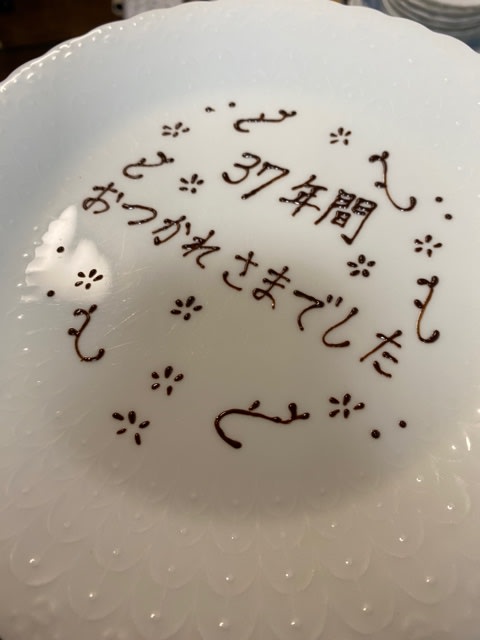 37年間
おつかれさまでした